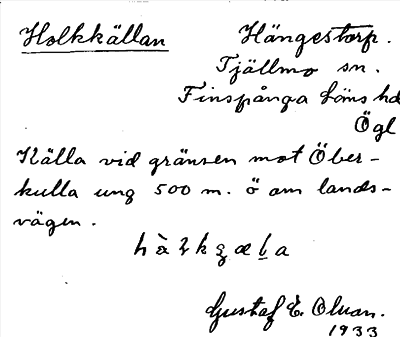 Holkkällan
Hängestorp.
Tjällmo sn.
Finspånga läns hd
Ögl
Källa vid gränsen mot Över-
kulla ung 500 m. ö om lands-
vägen.
Gustaf E. Olvan.
1933